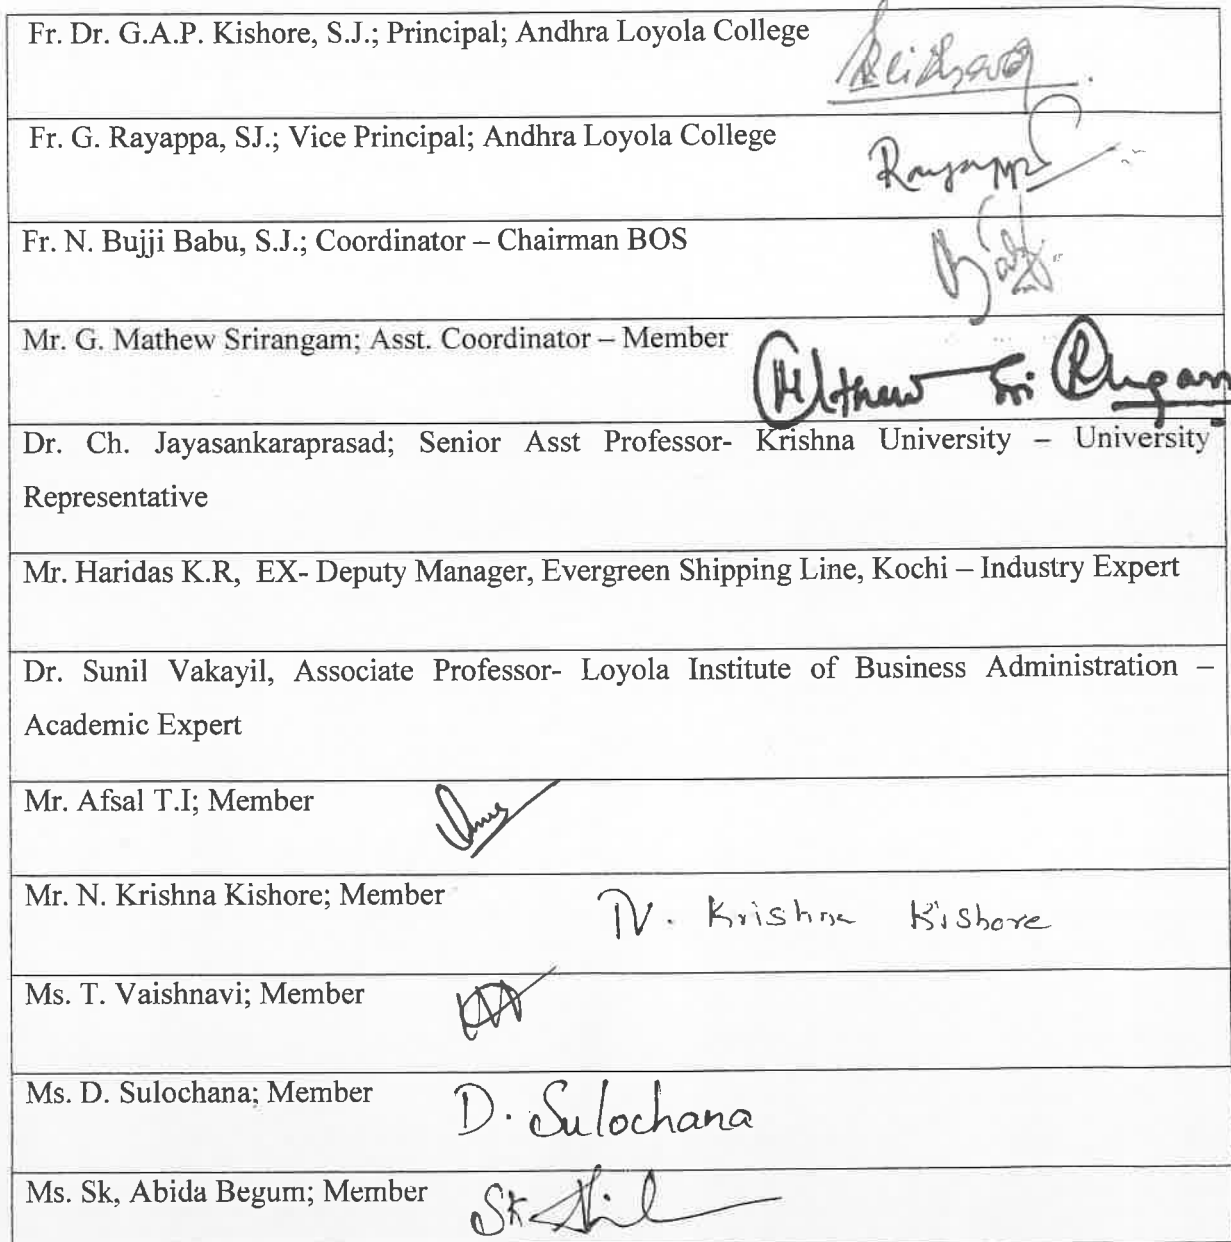 Fr. Dr. G.A.P. Kishore, S.J.; Principal; Andhra Loyola College
Fr. G. Rayappa, SJ.; Vice Principal; Andhra Loyola College
Rayappa
Fr. N. Bujji Babu, S.J.; Coordinator – Chairman BOS
Mr. G. Mathew Srirangam; Asst. Coordinator – Member
Mathew Sri Rangam
Dr. Ch. Jayasankaraprasad; Senior Asst Professor- Krishna University – University
Representative
Mr. Haridas K.R, EX- Deputy Manager, Evergreen Shipping Line, Kochi – Industry Expert
Dr. Sunil Vakayil, Associate Professor- Loyola Institute of Business Administration –
Academic Expert
Mr. Afsal T.I; Member
Mr. N. Krishna Kishore; Member
N. Krishna Kishore
Ms. T. Vaishnavi; Member
Ms. D. Sulochana; Member
D. Sulochana
Ms. Sk, Abida Begum; Member
Sk